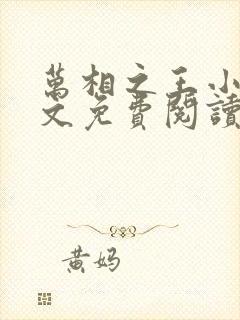 萬相之王小
文免費閱讀
黄妈